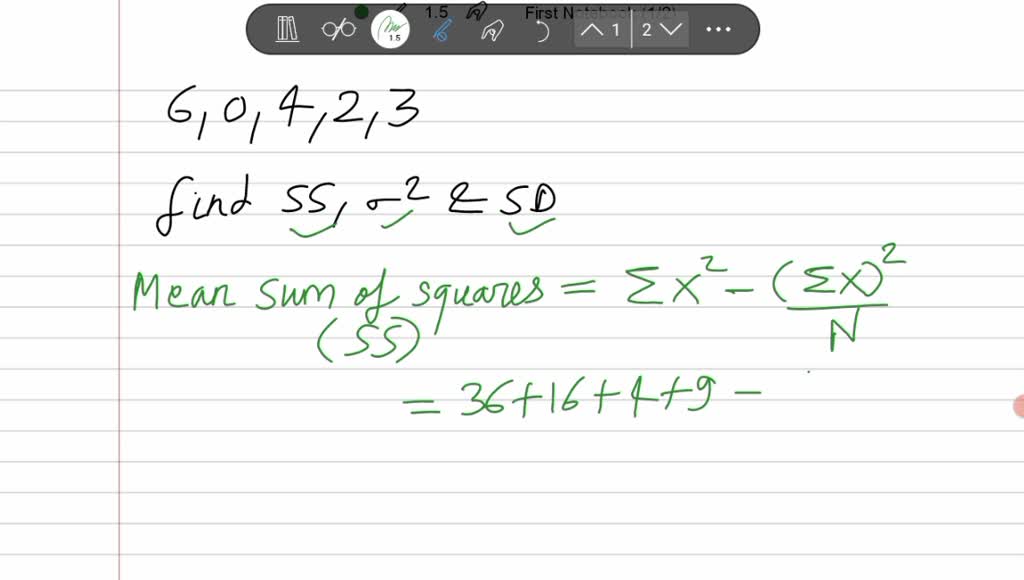 1.5 First Notebook (1/2)
1.5 1 2
6, 0, 4, 2, 3
find SS, σ² & SD
Mean sum of squares = Σx² - (Σx)²/N
(SS)
= 36+16+4+9 -